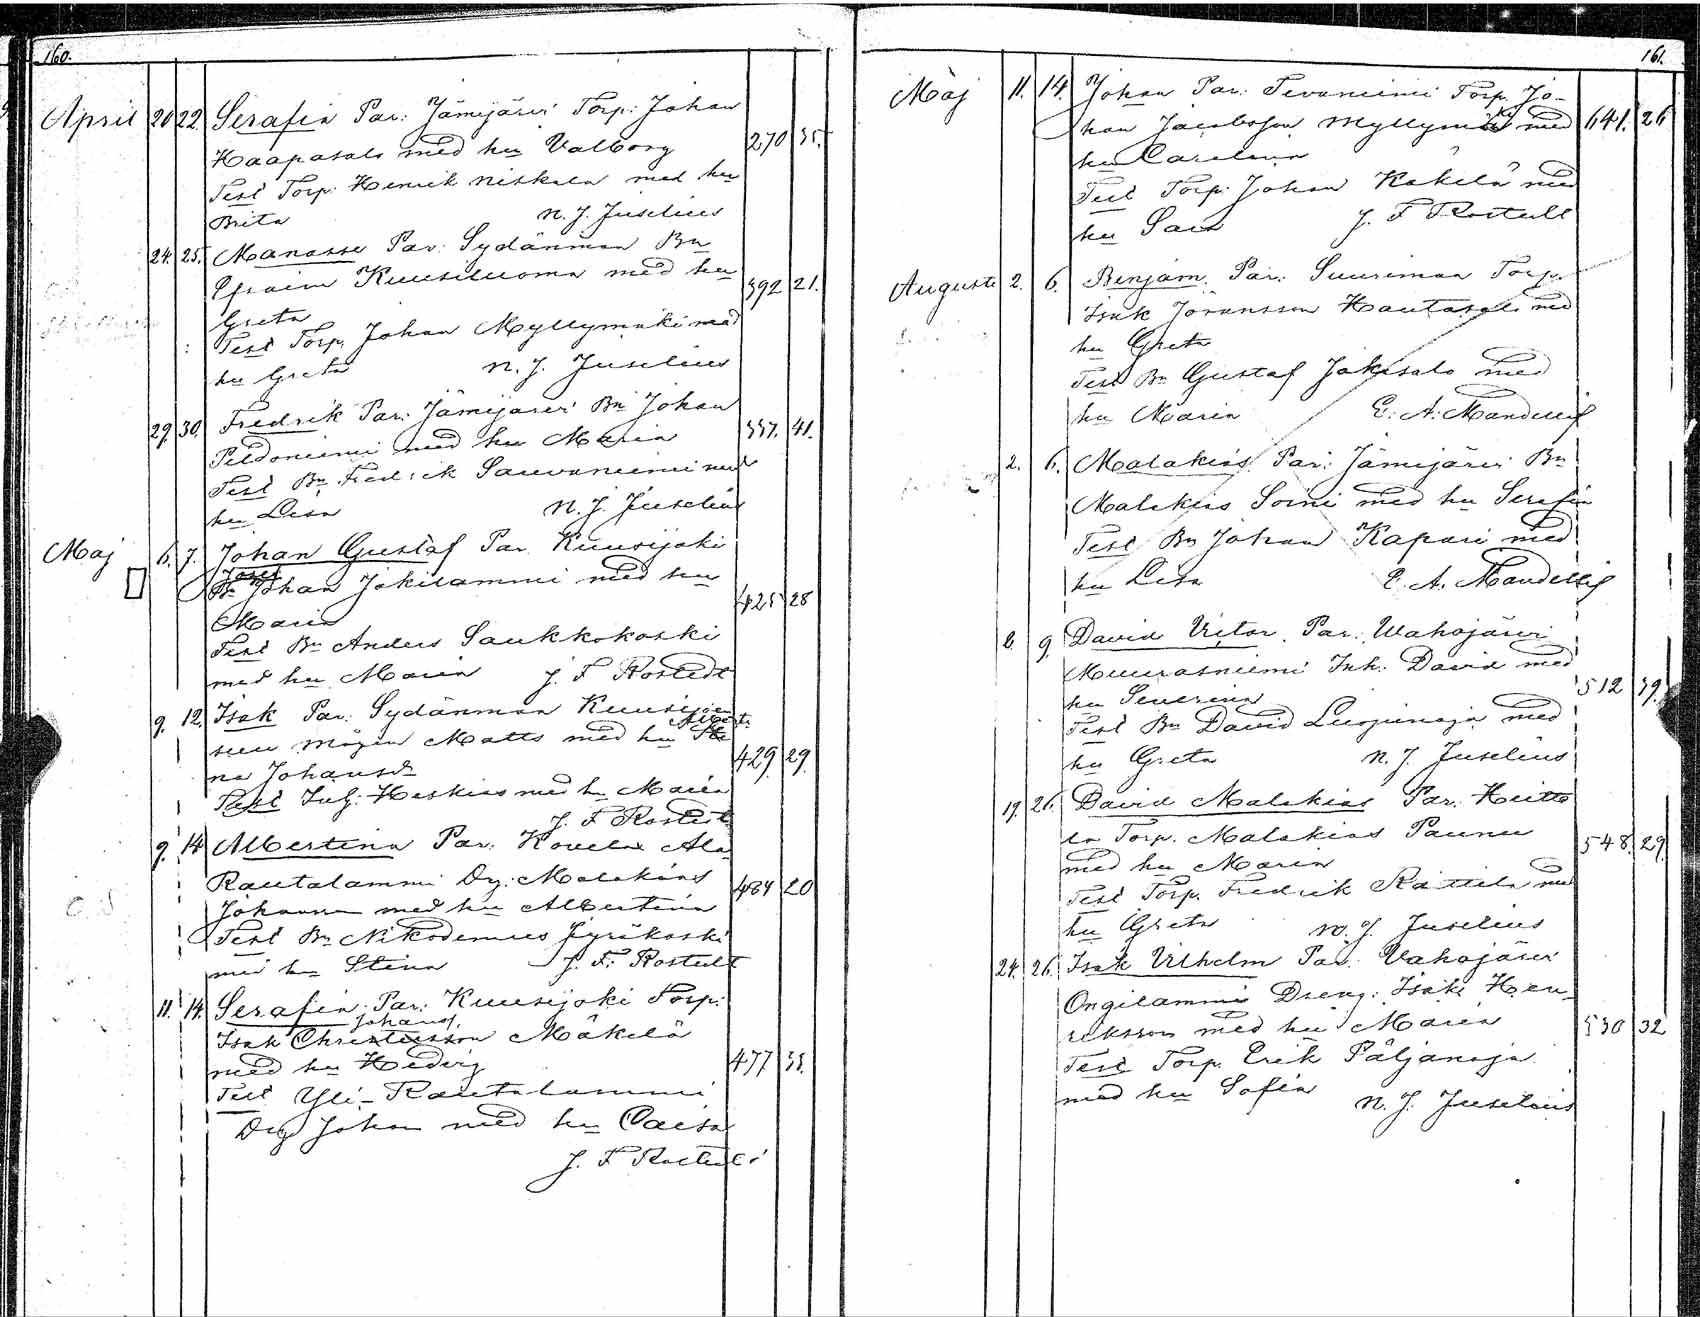 160.
April 20 22. Serafia Par: Jämijärvi Torp: Johan
Haapasalo med hu Valborg 270 35.
Test Torp: Henrik Niskala med hu
Brita N. J. Juselius
24. 25. Manasse Par: Sydänmaa Bn
Efraim Kuusiluoma med hu 392 21.
Greta
Test Torp. Johan Myllymäki med
hu Greta N. J. Juselius
29. 30. Fredrik Par: Jämijärvi Bn Johan
Peldoniemi med hu Maria 337. 41.
Test Bn Fredrik Sauvaniemi med
hu Lisa N. J. Juselius
Maj 6. 7. Johan Gustaf Par. Kuusijoki
Josef
Bn Johan Jokilammi med hu
Maria 425 28
Test Bn Anders Saukkokoski
med hu Maria J. F Rostedt
9. 12. Isak Par: Sydänmaa
Albert
Mågen Matts med hu
na Johansd 429 29.
Test Inh: Heskias med hu Maria
J. F Rostedt
9. 14 Albertina Par: Kovela Ala
Rautalammi Dg: Malakias 484 20
Johanna med hu Albertina
Test Bn Nikodemus Jyräkoski
med hu Stina J. F. Rostedt
11. 14. Serafia Par: Kuusijoki Torp:
Johans.
Isak Christersson Mäkelä
med hu Hedvig 477 35.
Test Yli-Rautalammi
Dg Johan med hu Caisa
J. F Rostedt
161.
Maj 11. 14. Johan Par: Tevaniemi Torp. Jo-
han Jacobsson Myllymäki med 641. 26
hu Carolina
Test Torp: Johan Käkelä med
hu Sara J. F Rostedt
Augusti 2. 6. Benjam. Par: Suurimaa Torp.
Isak Jöransson Hautasalo med
hu Greta
Test Bn Gustaf Jokisalo med
hu Maria E. A. Mandellöf
2. 6. Malakias Par: Jämijärvi Bn
Malakias Soini med hu Serafia
Test Bn Johan Kapari med
hu Lisa E. A. Mandellöf
8. 9. David Victor Par: Wahojärvi
Muurasniemi Inh. David med
hu Severina 512 39.
Test Bn David Luojanoja med
hu Greta N. J. Juselius
19. 26. David Malakias Par. Heitto
la Torp. Malakias Paunu 548. 29.
med hu Maria
Test Torp. Fredrik Rättilä med
hu Greta N. J Juselius
24. 26. Isak Vilhelm Par Vahojärvi
Ongilammi Dreng: Isak Hen-
riksson med hu Maria 530 32
Test Torp. Erik Päljänoja
med hu Sofia N. J. Juselius